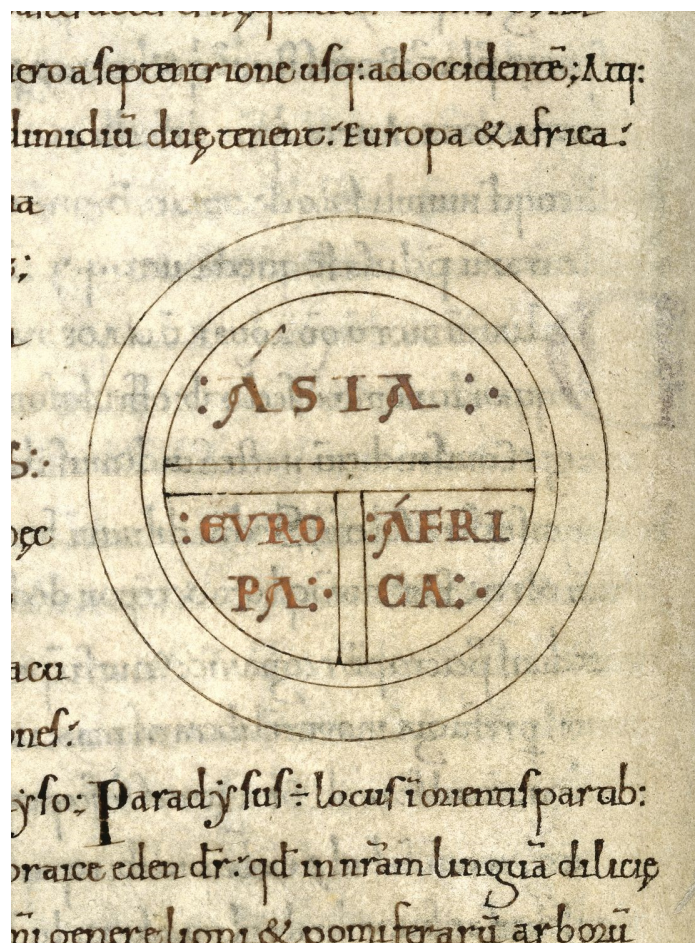 ero a septentrione usq: ad occidentē; Atq:
dimidiū duę tenent: Europa & Africa:
na
ꝫ;
: A S I A :·
: EVRO
: AFRI
PA:·
CA:·
S:·
ęc
acu
ones:
yso; Paradẏsus ÷ locus ī orientis partib:
braice eden dr̄: qđ in nr̄am linguā dilicię
ni genere ligni & pomiferarū arborū